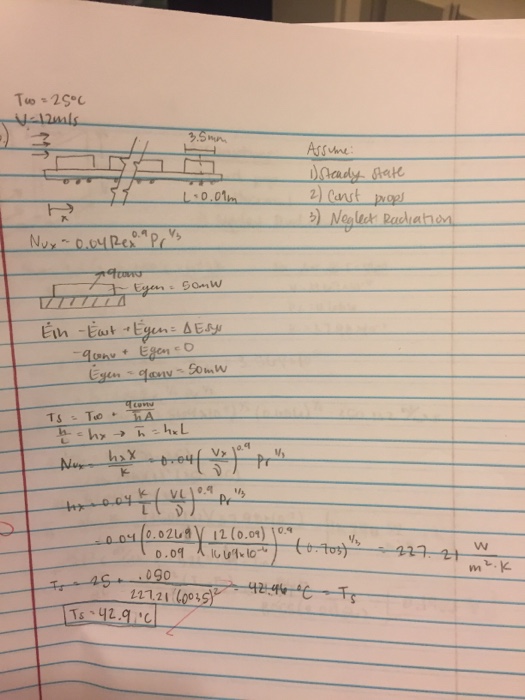 T∞ = 25°C
V = 12m/s
3.5mm
L = 0.09m
x
Assume:
1) Steady State
2) Const props
3) Neglect Radiation
Nux ~ 0.04 Rex^0.9 Pr^1/3
qconv
Egen = 50mW
Ėin - Ėout + Ėgen = ΔEsys
-qconv + Ėgen = 0
Ėgen = qconv = 50mW
Ts = T∞ + qconv/h̄A
h̄/L = hx → h̄ = hxL
Nux = hxX/k = 0.04 (Vx/ν)^0.9 Pr^1/3
hx = 0.04 k/L (VL/ν)^0.9 Pr^1/3
= 0.04 (0.0269/0.09) (12(0.09)/16.69x10^-6)^0.9 (0.703)^1/3 = 227.21 W/m²·K
Ts = 25 + .050/227.21(.0035)² = 42.96 °C = Ts
Ts = 42.9 °C